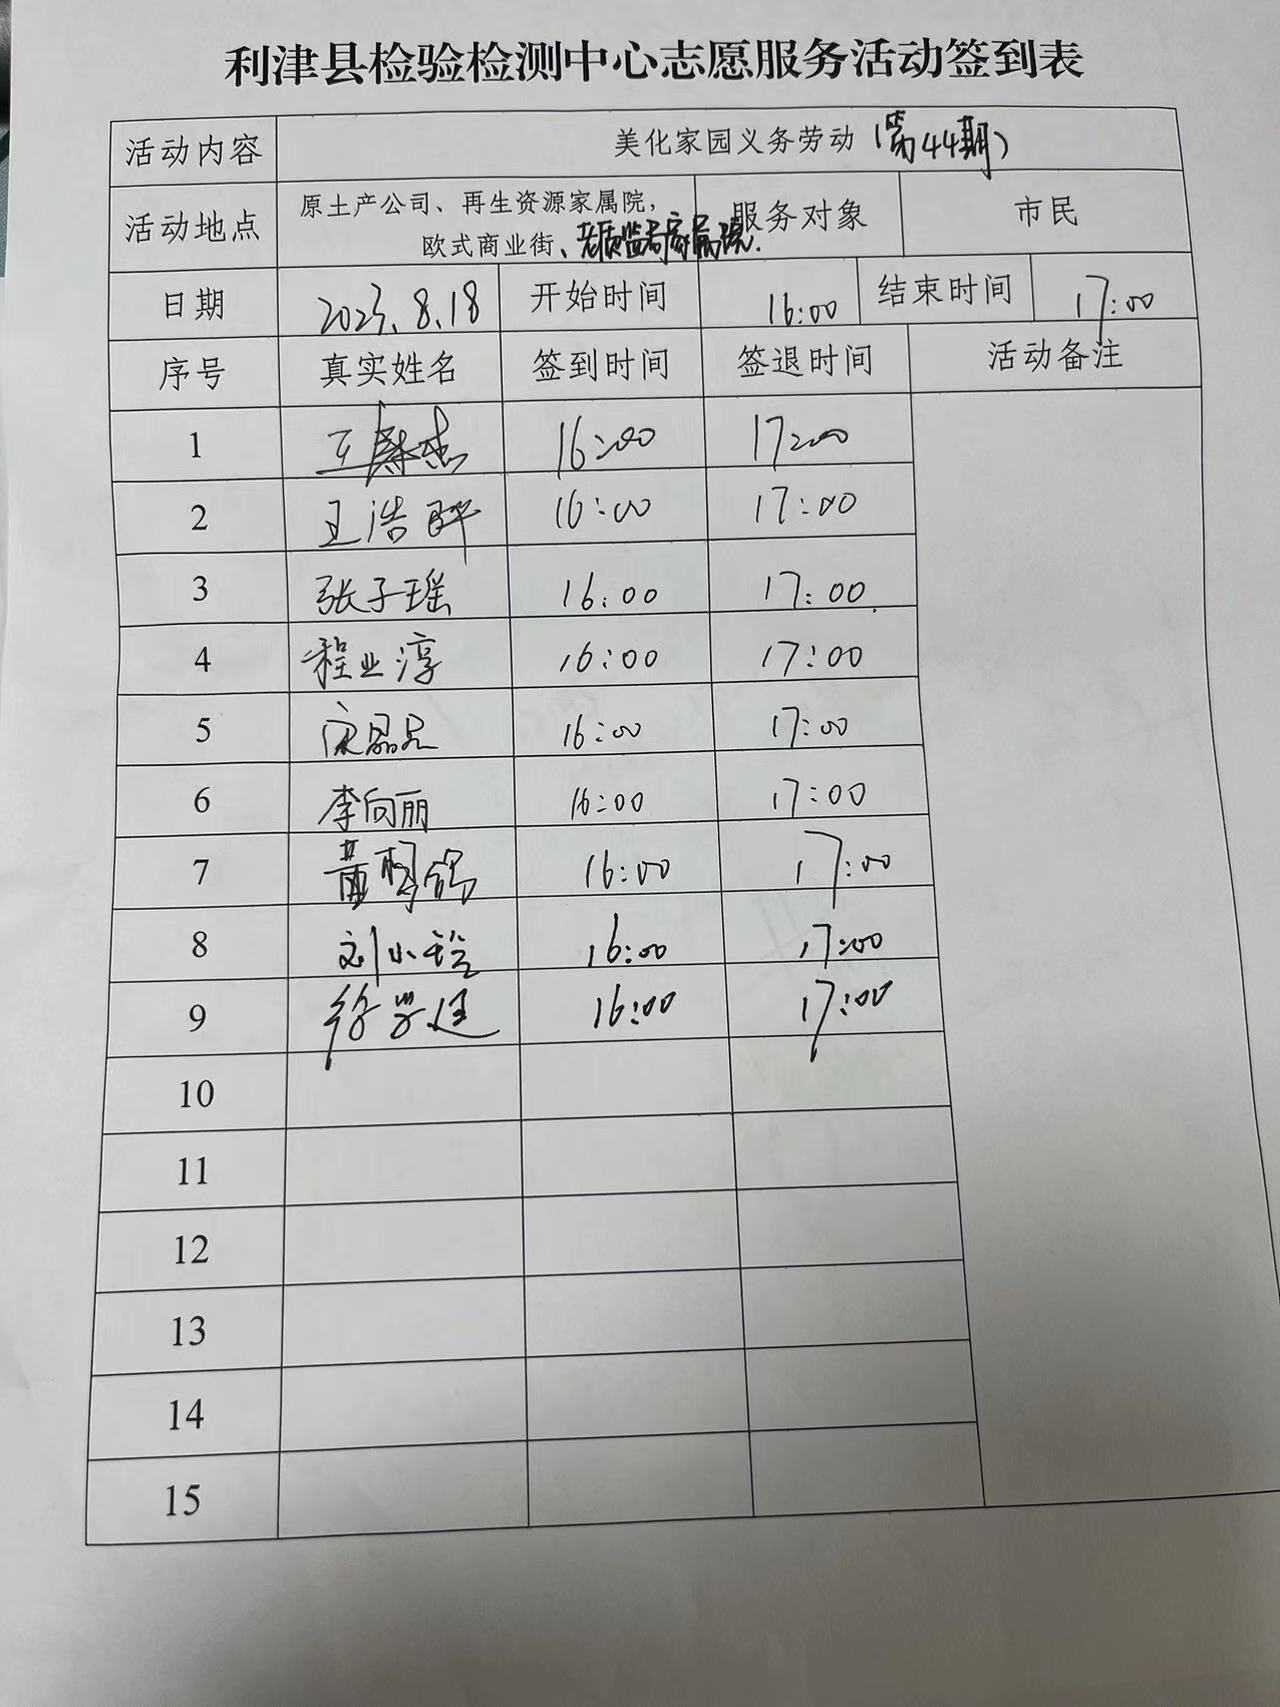 利津县检验检测中心志愿服务活动签到表
活动内容 美化家园义务劳动（第44期）
活动地点 原土产公司、再生资源家属院， 服务对象 市民
欧式商业街、老质监局家属院.
日期 2023.8.18 开始时间 16:00 结束时间 17:00
序号 真实姓名 签到时间 签退时间 活动备注
1 16:00 17:00
2 王浩 16:00 17:00
3 张子瑶 16:00 17:00
4 程业淳 16:00 17:00
5 宋晶晶 16:00 17:00
6 李向丽 16:00 17:00
7 黄 16:00 17:00
8 刘小 16:00 17:00
9 徐学廷 16:00 17:00
10
11
12
13
14
15